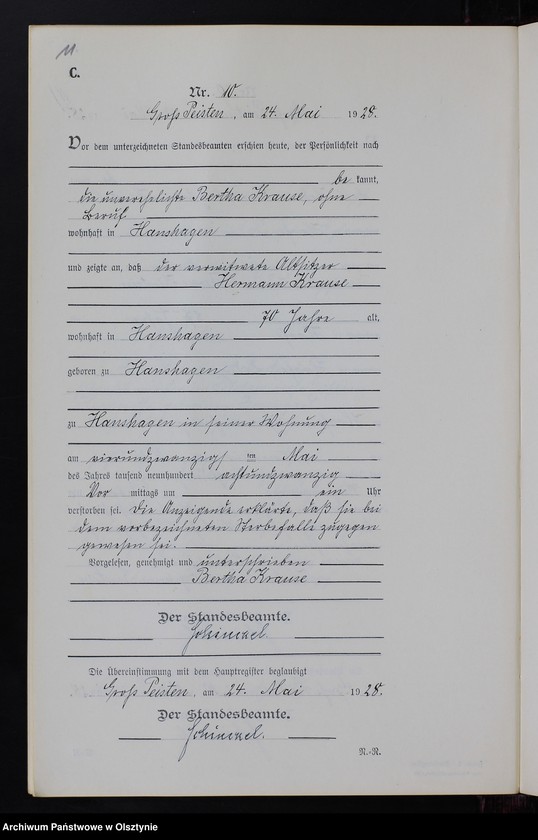 11
C.
Nr. 10.
Groß Peisten, am 24. Mai 1928.
Vor dem unterzeichneten Standesbeamten erschien heute, der Persönlichkeit nach
be kannt,
die unverehelichte Bertha Krause, ohne
Beruf
wohnhaft in Hanshagen
und zeigte an, daß der verwitwete Altsitzer
Hermann Krause
70 Jahre alt,
wohnhaft in Hanshagen
geboren zu Hanshagen
zu Hanshagen in seiner Wohnung
am vierundzwanzigsten Mai
des Jahres tausend neunhundert achtundzwanzig
Vor mittags um ein Uhr
verstorben sei. Die Anzeigende erklärte, daß sie bei
dem vorbezeichneten Sterbefalle zugegen
gewesen sei.
Vorgelesen, genehmigt und unterschrieben
Bertha Krause
Der Standesbeamte.
Die Übereinstimmung mit dem Hauptregister beglaubigt
Groß Peisten, am 24. Mai 1928.
Der Standesbeamte.
N.-R.
Archiwum Państwowe w Olsztynie